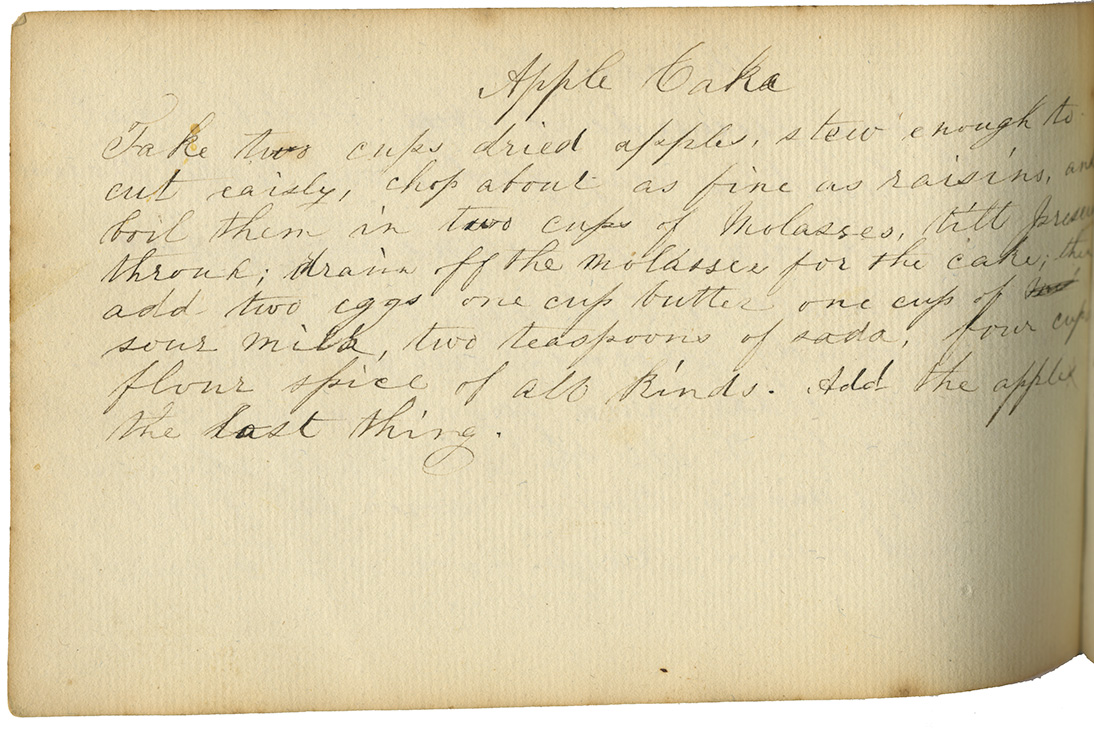 Apple Cake
Take two cups dried apples, stew enough to
cut eaisly, chop about as fine as raisins, and
boil them in two cups of Molasses, till
through; drain off the molasses for the cake; then
add two eggs one cup butter one cup of
sour milk, two teaspoons of soda, four cups
flour spice of all kinds. Add the apple
the last thing.